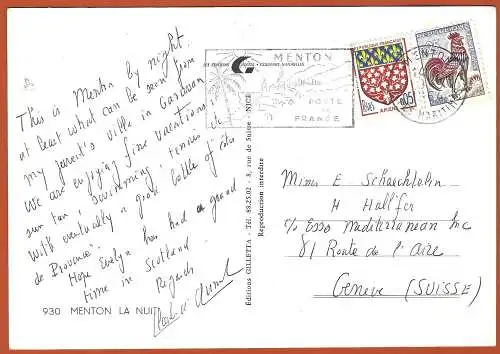 This is Menton by night.
at least what can be seen from
my parent's villa in Garavan
We are enjoying fine vacations:
sun tan, swimming, tennis etc
with eventually a good bottle of "Côtes
de Provence".
Hope Evelyn has had a good
time in Scotland.
Regards
930 MENTON LA NUIT
Editions GILLETTA - Tél. 88.25.02 - 8, rue de Suisse - NICE
Reproduction interdite
MENTON
ROUTE
DE
FRANCE
REPUBLIQUE FRANÇAISE
POSTES
0,05
AMIENS
MENTON
Mimes E Schaechtelin
H Hallfer
c/o Esso Mediterranean Inc
81 Route de l'Aire
Geneve (SUISSE)